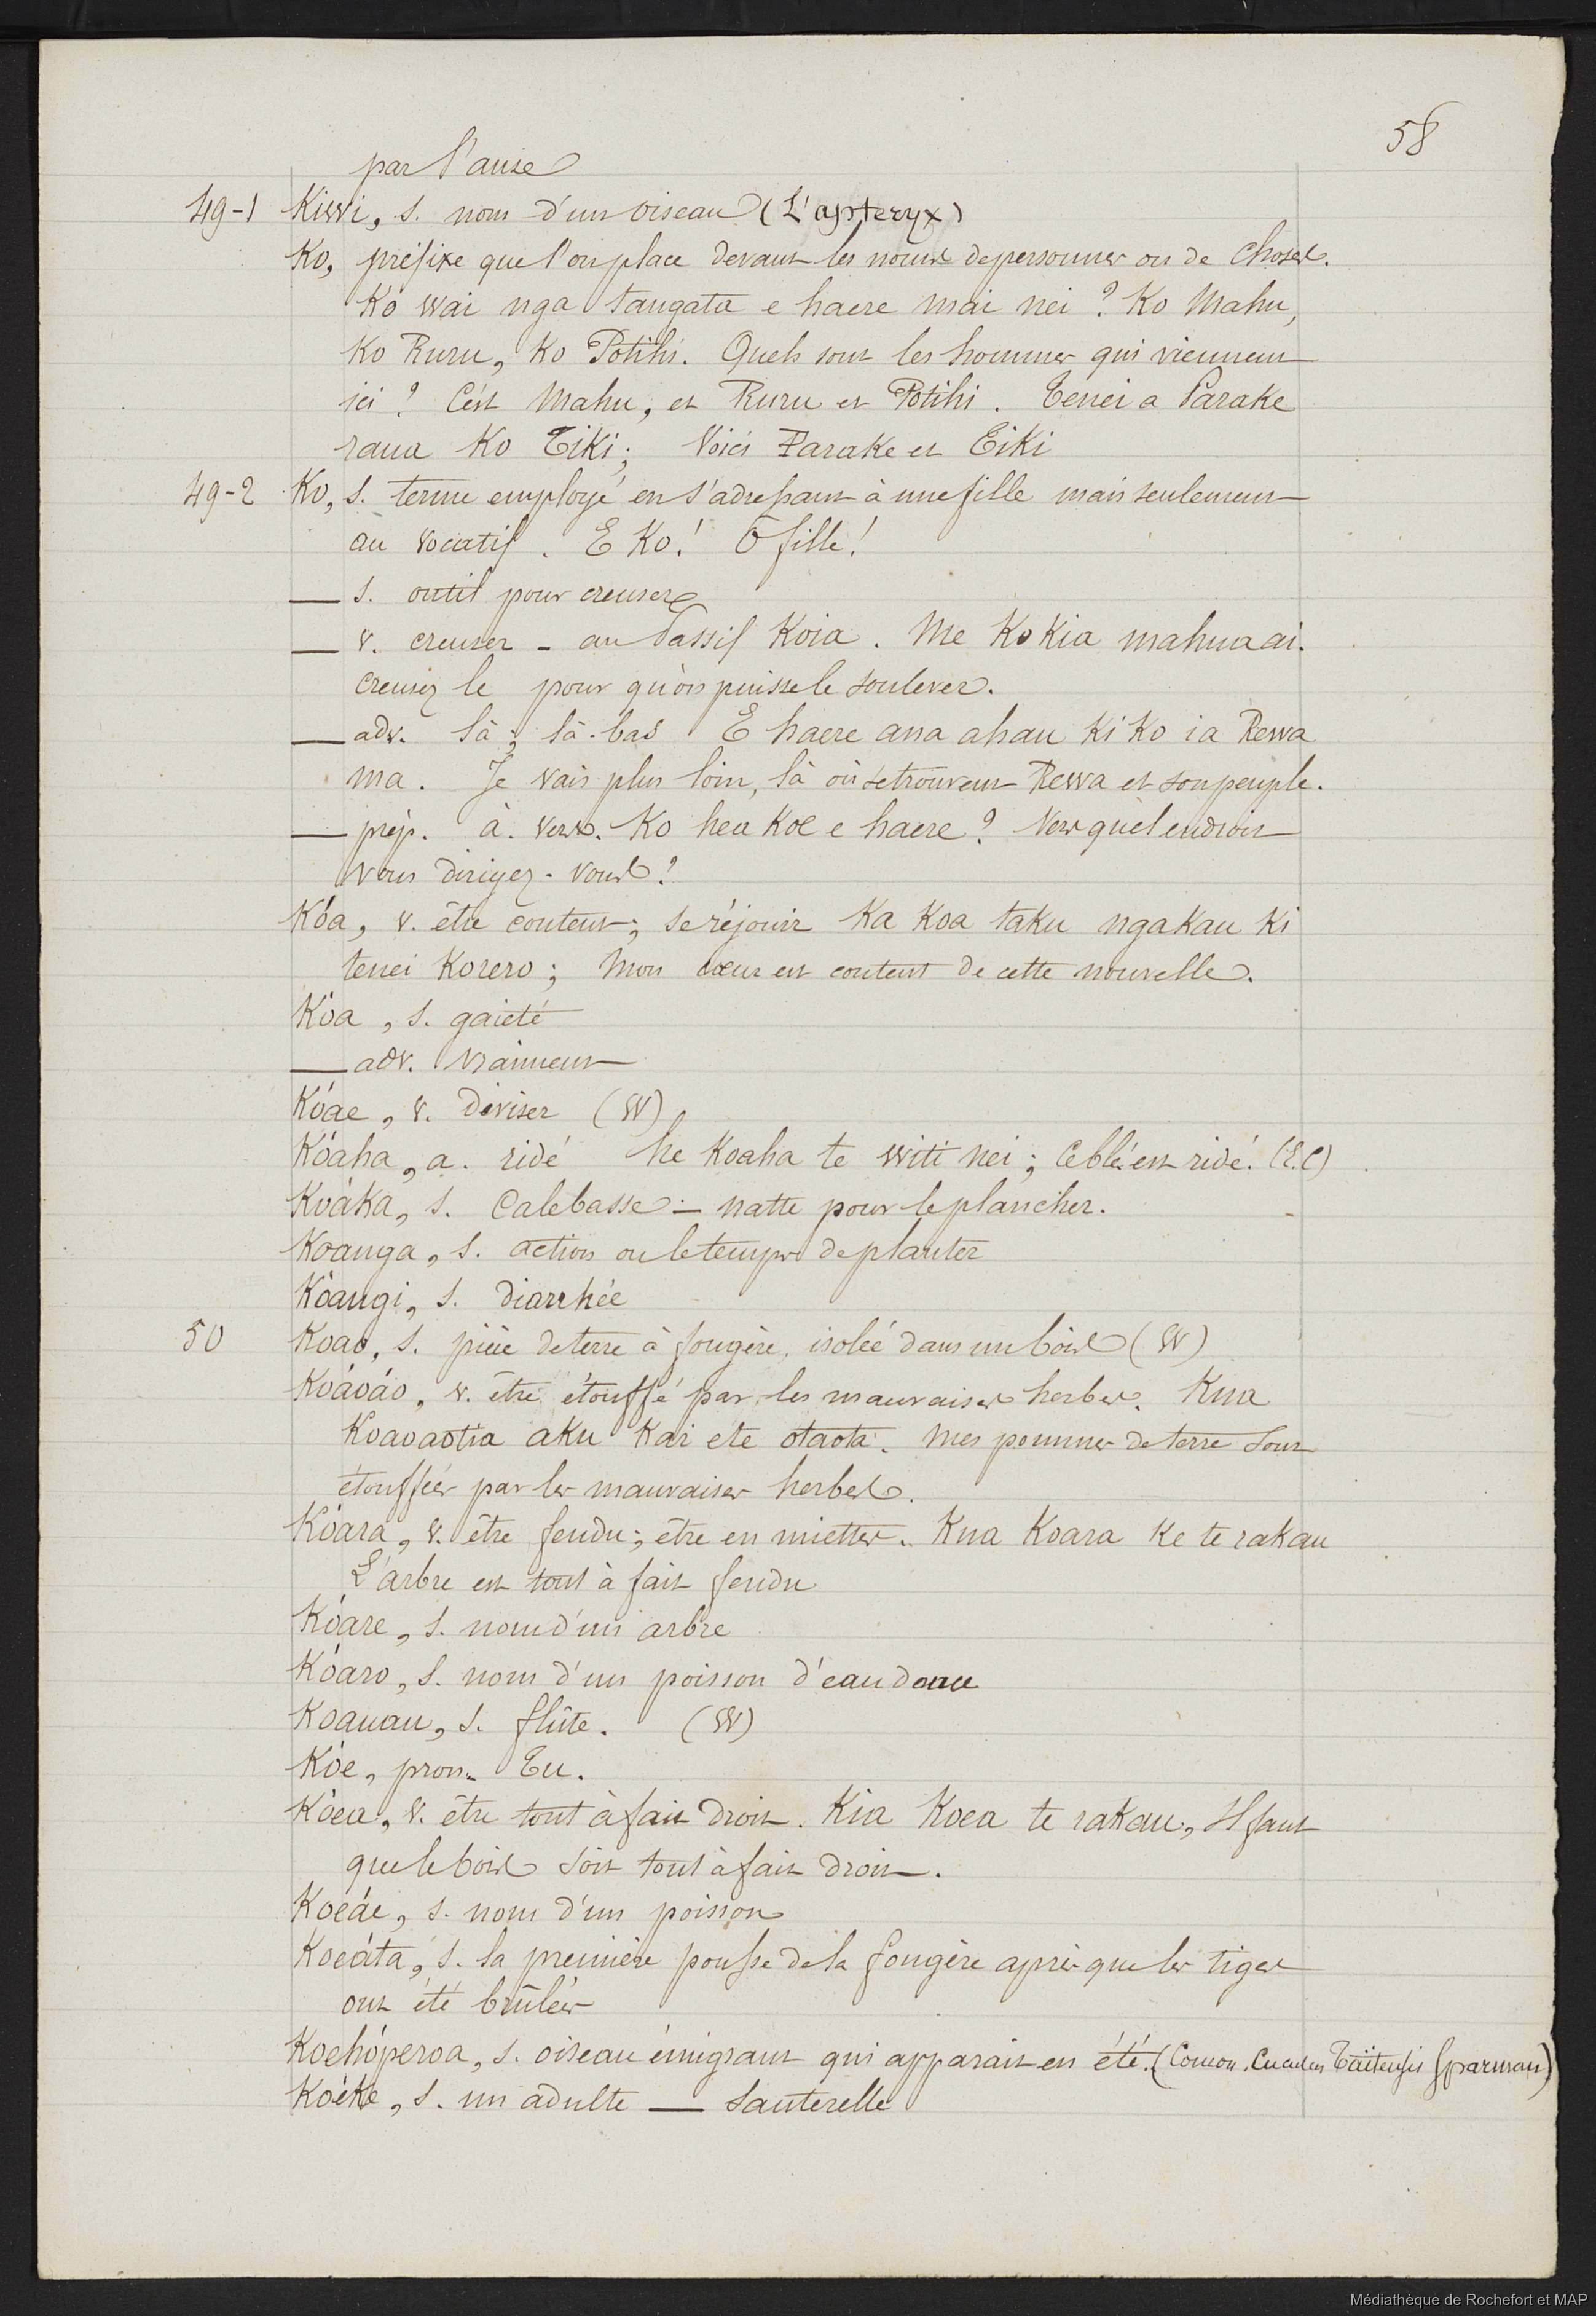 58
par l'anse
49-1 Kiwi, s. nom d'un oiseau (L'apteryx)
Ko, préfixe que l'on place devant les noms de personnes ou de choses.
Ko wai nga tangata e haere mai nei ? Ko Mahu,
Ko Ruru, Ko Potihi. Quels sont les hommes qui viennent
ici ? C'est Mahu, et Ruru et Potihi. Tenei a Parake
raua Ko Tiki; Voici Parake et Tiki
49-2 Ko, s. terme employé en s'adressant à une fille mais seulement
au vocatif. E Ko! O fille!
— s. outil pour creuser
— v. creuser - au Passif Koia. Me Ko Kia mahua ai.
Creusez le pour qu'on puisse le soulever.
— adv. là; là-bas E haere ana ahau Ki Ko ia Rewa
ma. Je vais plus loin, là où se trouvent Rewa et son peuple.
— prép. à. vers. Ko hea Koe e haere? Vers quel endroit
vous dirigez-vous?
Kóa, v. être content; se réjouir Ka Koa taku ngakau Ki
tenei Korero; Mon cœur est content de cette nouvelle.
Kóa, s. gaieté
— adv. Vraiment
Kóae, v. Diviser (W)
Kóaha, a. ridé he Koaha te witi nei; Ce blé est ridé. (E.C)
Koáka, s. Calebasse — natte pour le plancher.
Koanga, s. action ou le temps de planter
Kóangi, s. diarrhée
50 Koao, s. pièce de terre à fougère, isolée dans un bois (W)
Koáoáo, v. être étouffé par les mauvaises herbes. Kua
Koaoaotia aku Kai e te otaota. Mes pommes de terre sont
étouffées par les mauvaises herbes.
Kóara, v. être fendu; être en miettes. Kua Koara Ke te rakau
L'arbre est tout à fait fendu
Kóare, s. nom d'un arbre
Kóaro, s. nom d'un poisson d'eau douce
Koauau, s. flûte. (W)
Kóe, pron. Tu.
Kóea, v. être tout à fait droit. Kia Koea te rakau, Il faut
que le bois soit tout à fait droit.
Koeáe, s. nom d'un poisson
Koeáta, s. la première pousse de la fougère après que les tiges
ont été brûlées
Koehóperoa, s. oiseau émigrant qui apparait en été. (Coucou. Cuculus Taïtensis Sparman)
Koéke, s. un adulte — Sauterelle
Médiathèque de Rochefort et MAP